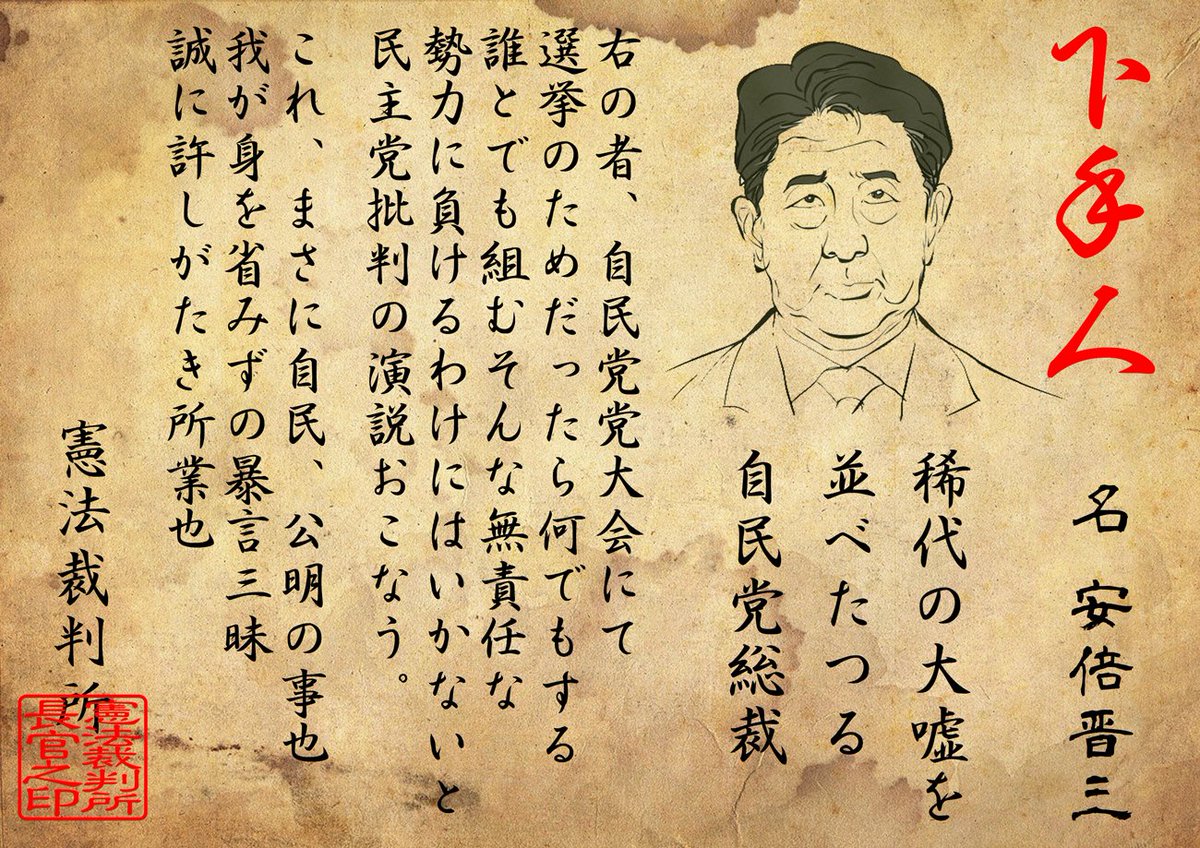 下手人
名 安倍晋三
稀代の大嘘を
並べたつる
自民党総裁
右の者、自民党党大会にて
選挙のためだったら何でもする
誰とでも組むそんな無責任な
勢力に負けるわけにはいかないと
民主党批判の演説おこなう。
これ、まさに自民、公明の事也
我が身を省みずの暴言三昧
誠に許しがたき所業也
憲法裁判所
憲法裁判所
長官之印